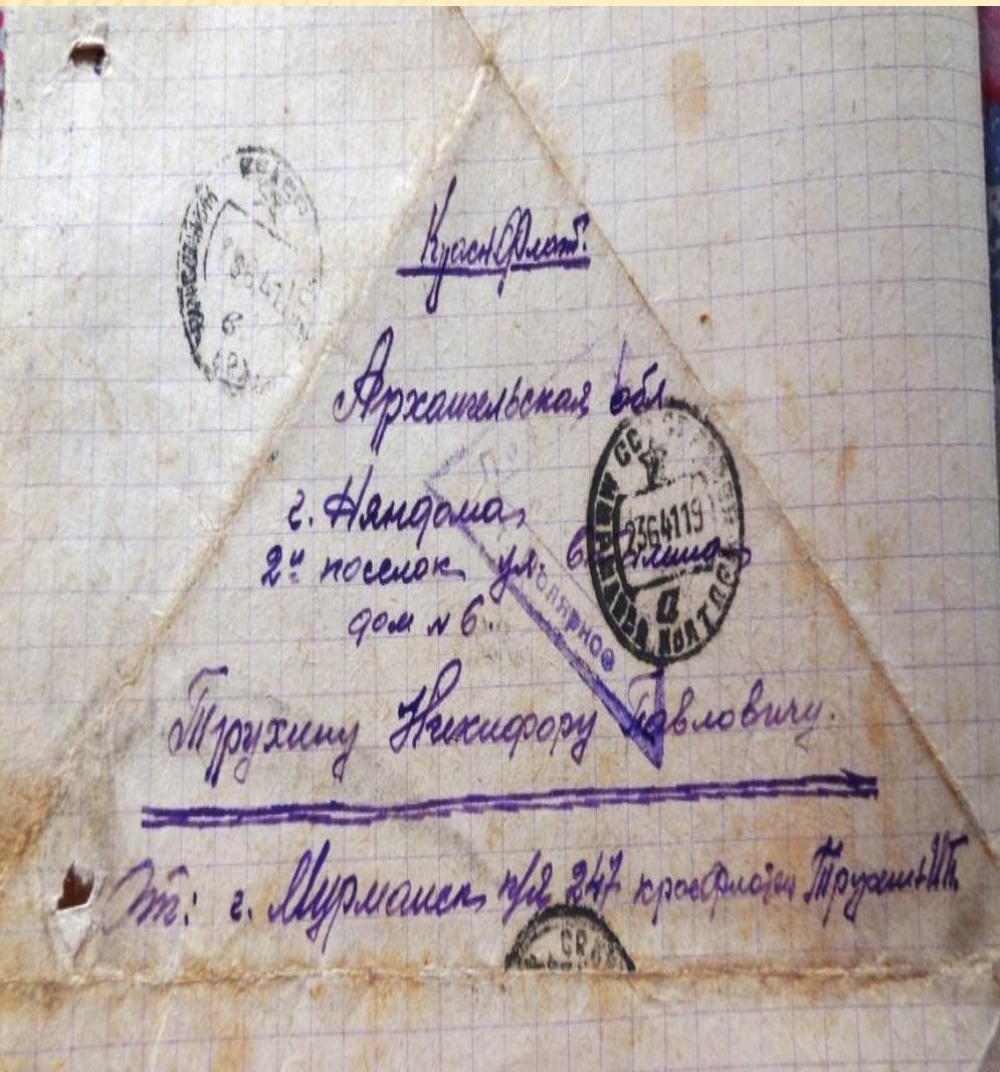 КраснФлот.
Архангельская обл.
г. Няндома,
2й поселок, ул.
дом № 6.
Трухину Никифору Павловичу.
От: г. Мурманск, п/я 247 краснофлотец Трухин
СССР
2364119
а
Полярное
6